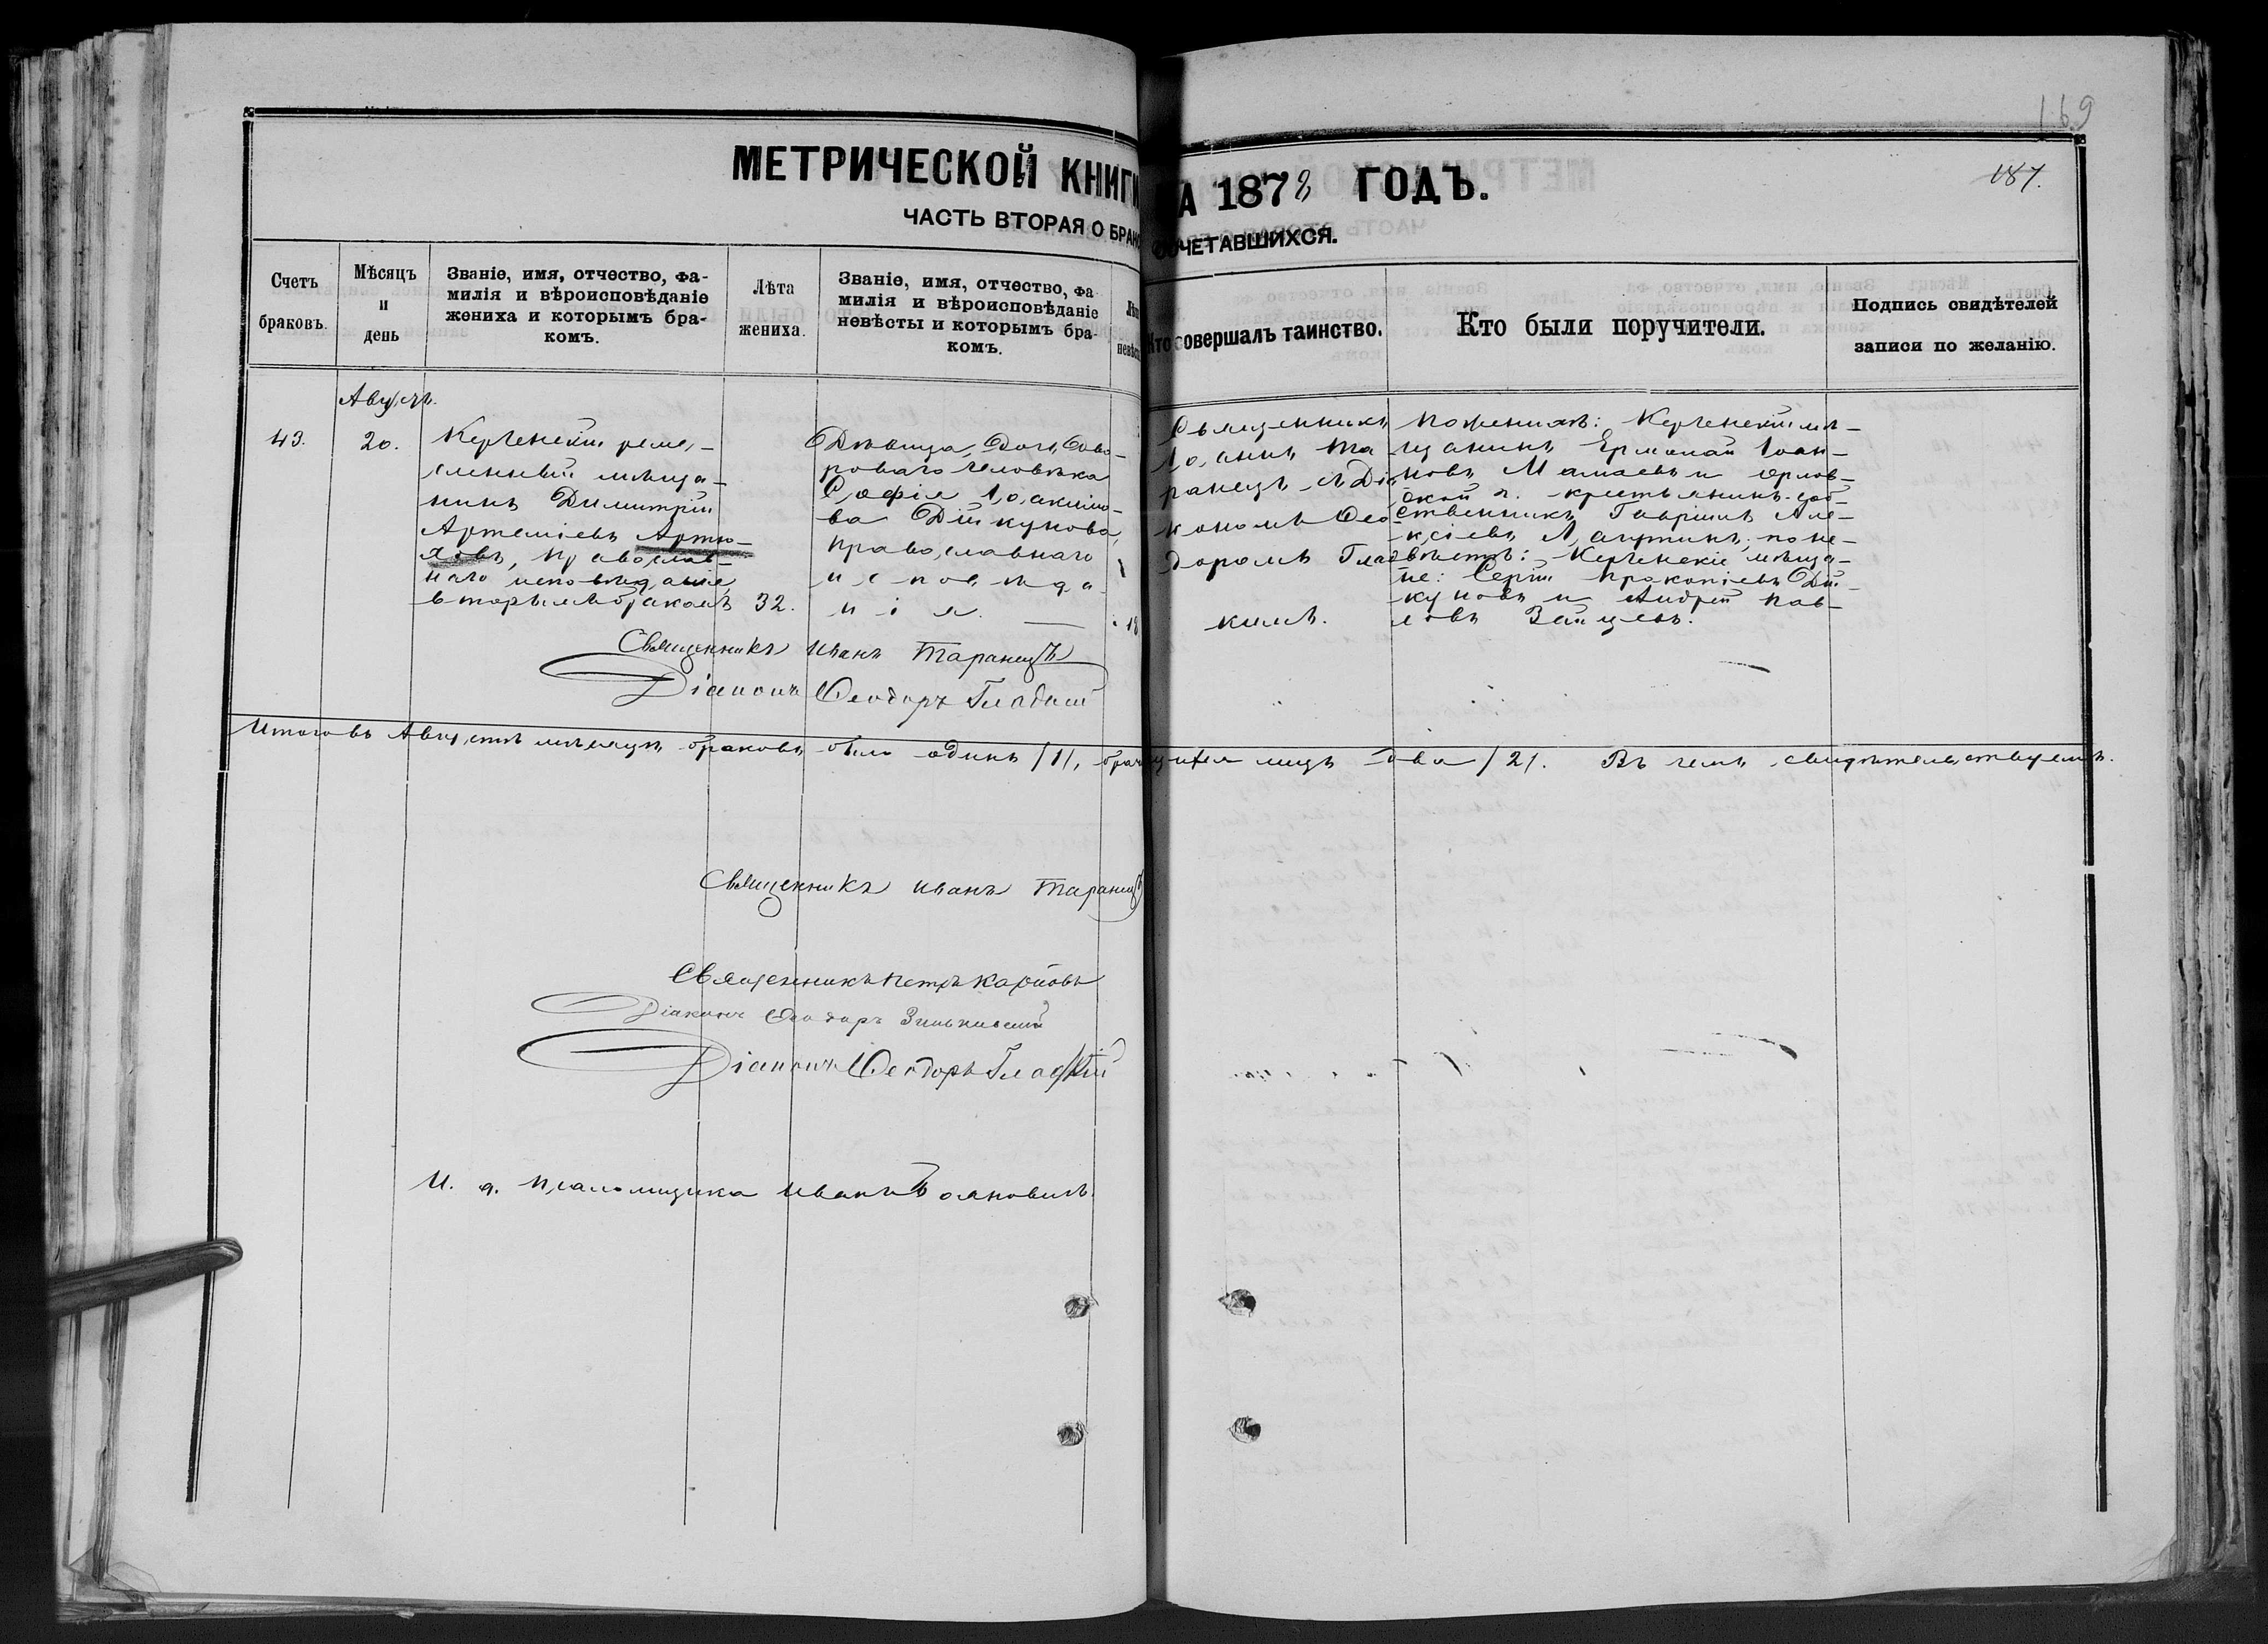 169
187.
МЕТРИЧЕСКОЙ КНИГИ
А 1878 ГОДЪ.
ЧАСТЬ ВТОРАЯ О БРАКО
СОЧЕТАВШИХСЯ.
Счетъ
браковъ.
Мѣсяцъ
и
день
Званіе, имя, отчество, фа-
милія и вѣроисповѣданіе
жениха и которымъ бра-
комъ.
Лѣта
жениха.
Званіе, имя, отчество, фа
милія и вѣроисповѣданіе
невѣсты и которымъ бра-
комъ.
Кто совершалъ таинство.
Кто были поручители.
Подпись свидѣтелей
записи по желанію.
43.
Августъ.
20.
Керченскій реме-
сленный мѣща-
нинъ Димитрій
Артеміевъ Артю-
ховъ, православ-
наго исповѣданія,
вторымъ бракомъ
32.
Дѣвица, дочь дово-
роваго человѣка
Софія Іоакимо-
ва Дикунова,
православнаго
исповѣда
нія.
18
Священникъ
Іоаннъ Та
ранецъ съ Діа
кономъ Фео
доромъ Глад
кимъ.
По женихѣ: Керченскій мѣ-
щанинъ Ермолай Іоан-
новъ Мамаевъ и Орлов-
ской г. крестьянинъ соб-
ственникъ Гавріилъ Але-
ксіевъ Лагутинъ; по не-
вѣстѣ: Керченскіе мѣща-
не: Сергій Прокопіевъ Ди-
куновъ и Андрей Пав-
ловъ Зайцевъ.
Священникъ Иванъ Таранецъ
Діаконъ Феодоръ Гладкій
Итого въ Августѣ мѣсяцѣ браковъ было одинъ /1/, брачущихся лицъ два /2/. Въ чемъ свидѣтельствуемъ.
Священникъ Иванъ Таранецъ
Священникъ Петръ Карповъ
Діаконъ Феодоръ Зиньковскій
Діаконъ Феодоръ Гладкій
И. д. Псаломщика Иванъ Бояновичъ.